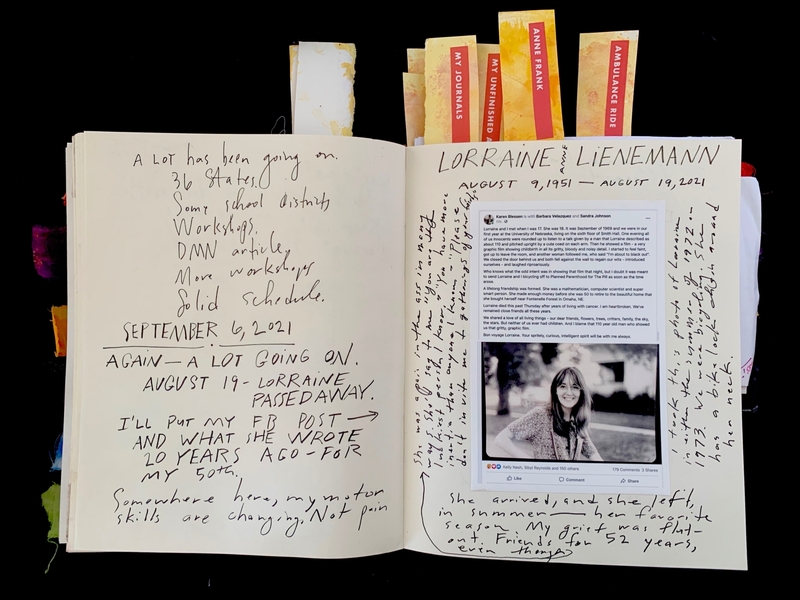 MY JOURNALS
MY UNFINISHED
ANNE FRANK
AMBULANCE RIDE
A LOT has been going on.
36 States.
Some school districts
Workshops.
DMN article.
More workshops
Solid Schedule.
SEPTEMBER 6, 2021
AGAIN — A LOT GOING ON.
AUGUST 19 - LORRAINE
PASSED AWAY.
I'LL PUT MY FB POST →
AND WHAT SHE WROTE
20 YEARS AGO - FOR
MY 50th.
Somewhere here, my motor
skills are changing. Not pain
LORRAINE ANNE LIENEMANN
AUGUST 9, 1951 — AUGUST 19, 2021
She was a pain in the ass in many
ways. She'd say to me "You are the
person I know," "you have more
than anyone I know - "Please
don't invite me to gatherings of your
Karen Blessen is with Barbara Velazquez and Sandra Johnson
Lorraine and I met when I was 17. She was 18. It was September of 1969 and we were in our
first year at the University of Nebraska, living on the sixth floor of Smith Hall. One evening all
of us innocents were rounded up to listen to a talk given by a man that Lorraine described as
about 110 and pitched upright by a cute coed on each arm. Then he showed a film - a very
graphic film showing childbirth in all its gritty, bloody and noisy detail. I started to feel faint,
got up to leave the room, and another woman followed me, who said "I'm about to black out"
We closed the door behind us and both fell against the wall to regain our wits - introduced
ourselves - and laughed riproariously.
Who knows what the odd intent was in showing that film that night, but I doubt it was meant
to send Lorraine and I bicycling off to Planned Parenthood for The Pill as soon as the time
arose.
A lifelong friendship was formed. She was a mathematician, computer scientist and super
smart person. She made enough money before she was 50 to retire to the beautiful home that
she bought herself near Fontenelle Forest in Omaha, NE.
Lorraine died this past Thursday after years of living with cancer. I am heartbroken. We've
remained close friends all these years.
We shared a love of all living things - our dear friends, flowers, trees, critters, family, the sky,
the stars. But neither of us ever had children. And I blame that 110 year old man who showed
us that gritty, graphic film.
Bon voyage Lorraine. Your spritely, curious, intelligent spirit will be with me always.
Kelly Nash, Sibyl Reynolds and 155 others
179 Comments 3 Shares
Like
Comment
Share
I took this photo of Lorraine
in the summer of 1972 or
1973. We were bicycling. She
has a bike lock chain around
her neck.
She arrived, and she left,
in summer — her favorite
season. My grief was flat-
out. Friends for 52 years,
even though